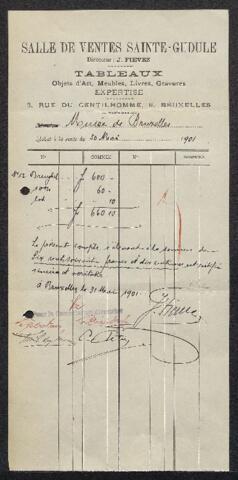 SALLE DE VENTES SAINTE-GUDULE
Directeur : J. FIEVEZ
TABLEAUX
Objets d'Art, Meubles, Livres, Gravures
EXPERTISE
3, RUE DU GENTILHOMME, BRUXELLES
Musée de Bruxelles
Achat à la vente du 20 Mai 1901
Nos SOMMES
No 12 Breughel f 600
10% 60
10
f 660 10
Le présent compte s'élevant à la somme de
Six cent soixante francs et dix centimes est certifié
sincère et véritable
à Bruxelles le 31 Mai 1901.
J. Fievez